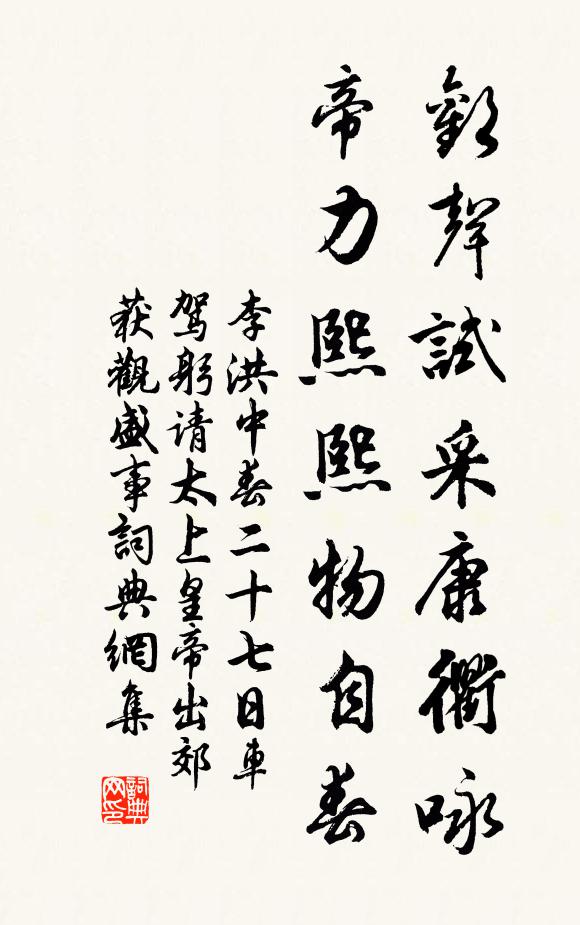 歡聲試采康衢咏
帝力熙熙物自春
李洪中春二十七日車
駕躬请太上皇帝出郊
获觀盛事詞典網集
詞典网印